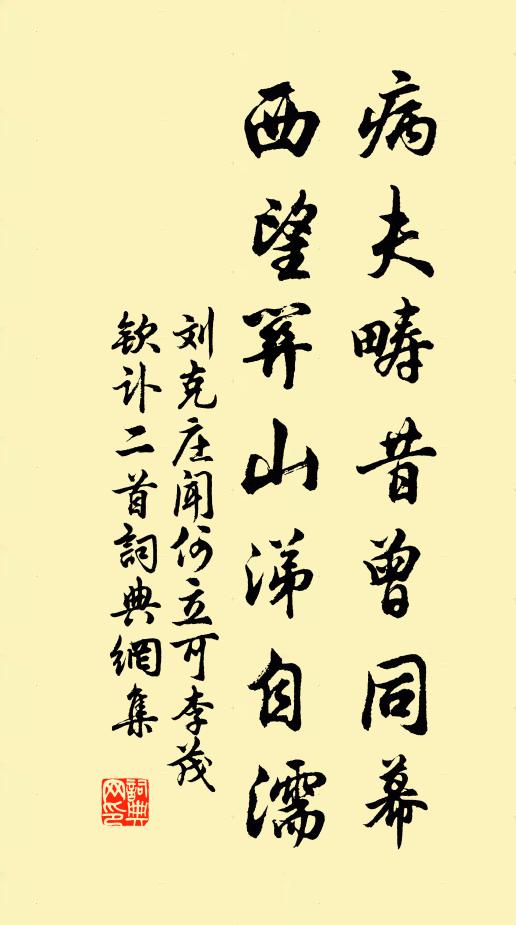 病夫畴昔曾同幕
西望关山涕自濡
刘克庄闻何立可李茂
钦讣二首詞典網集
詞典网印